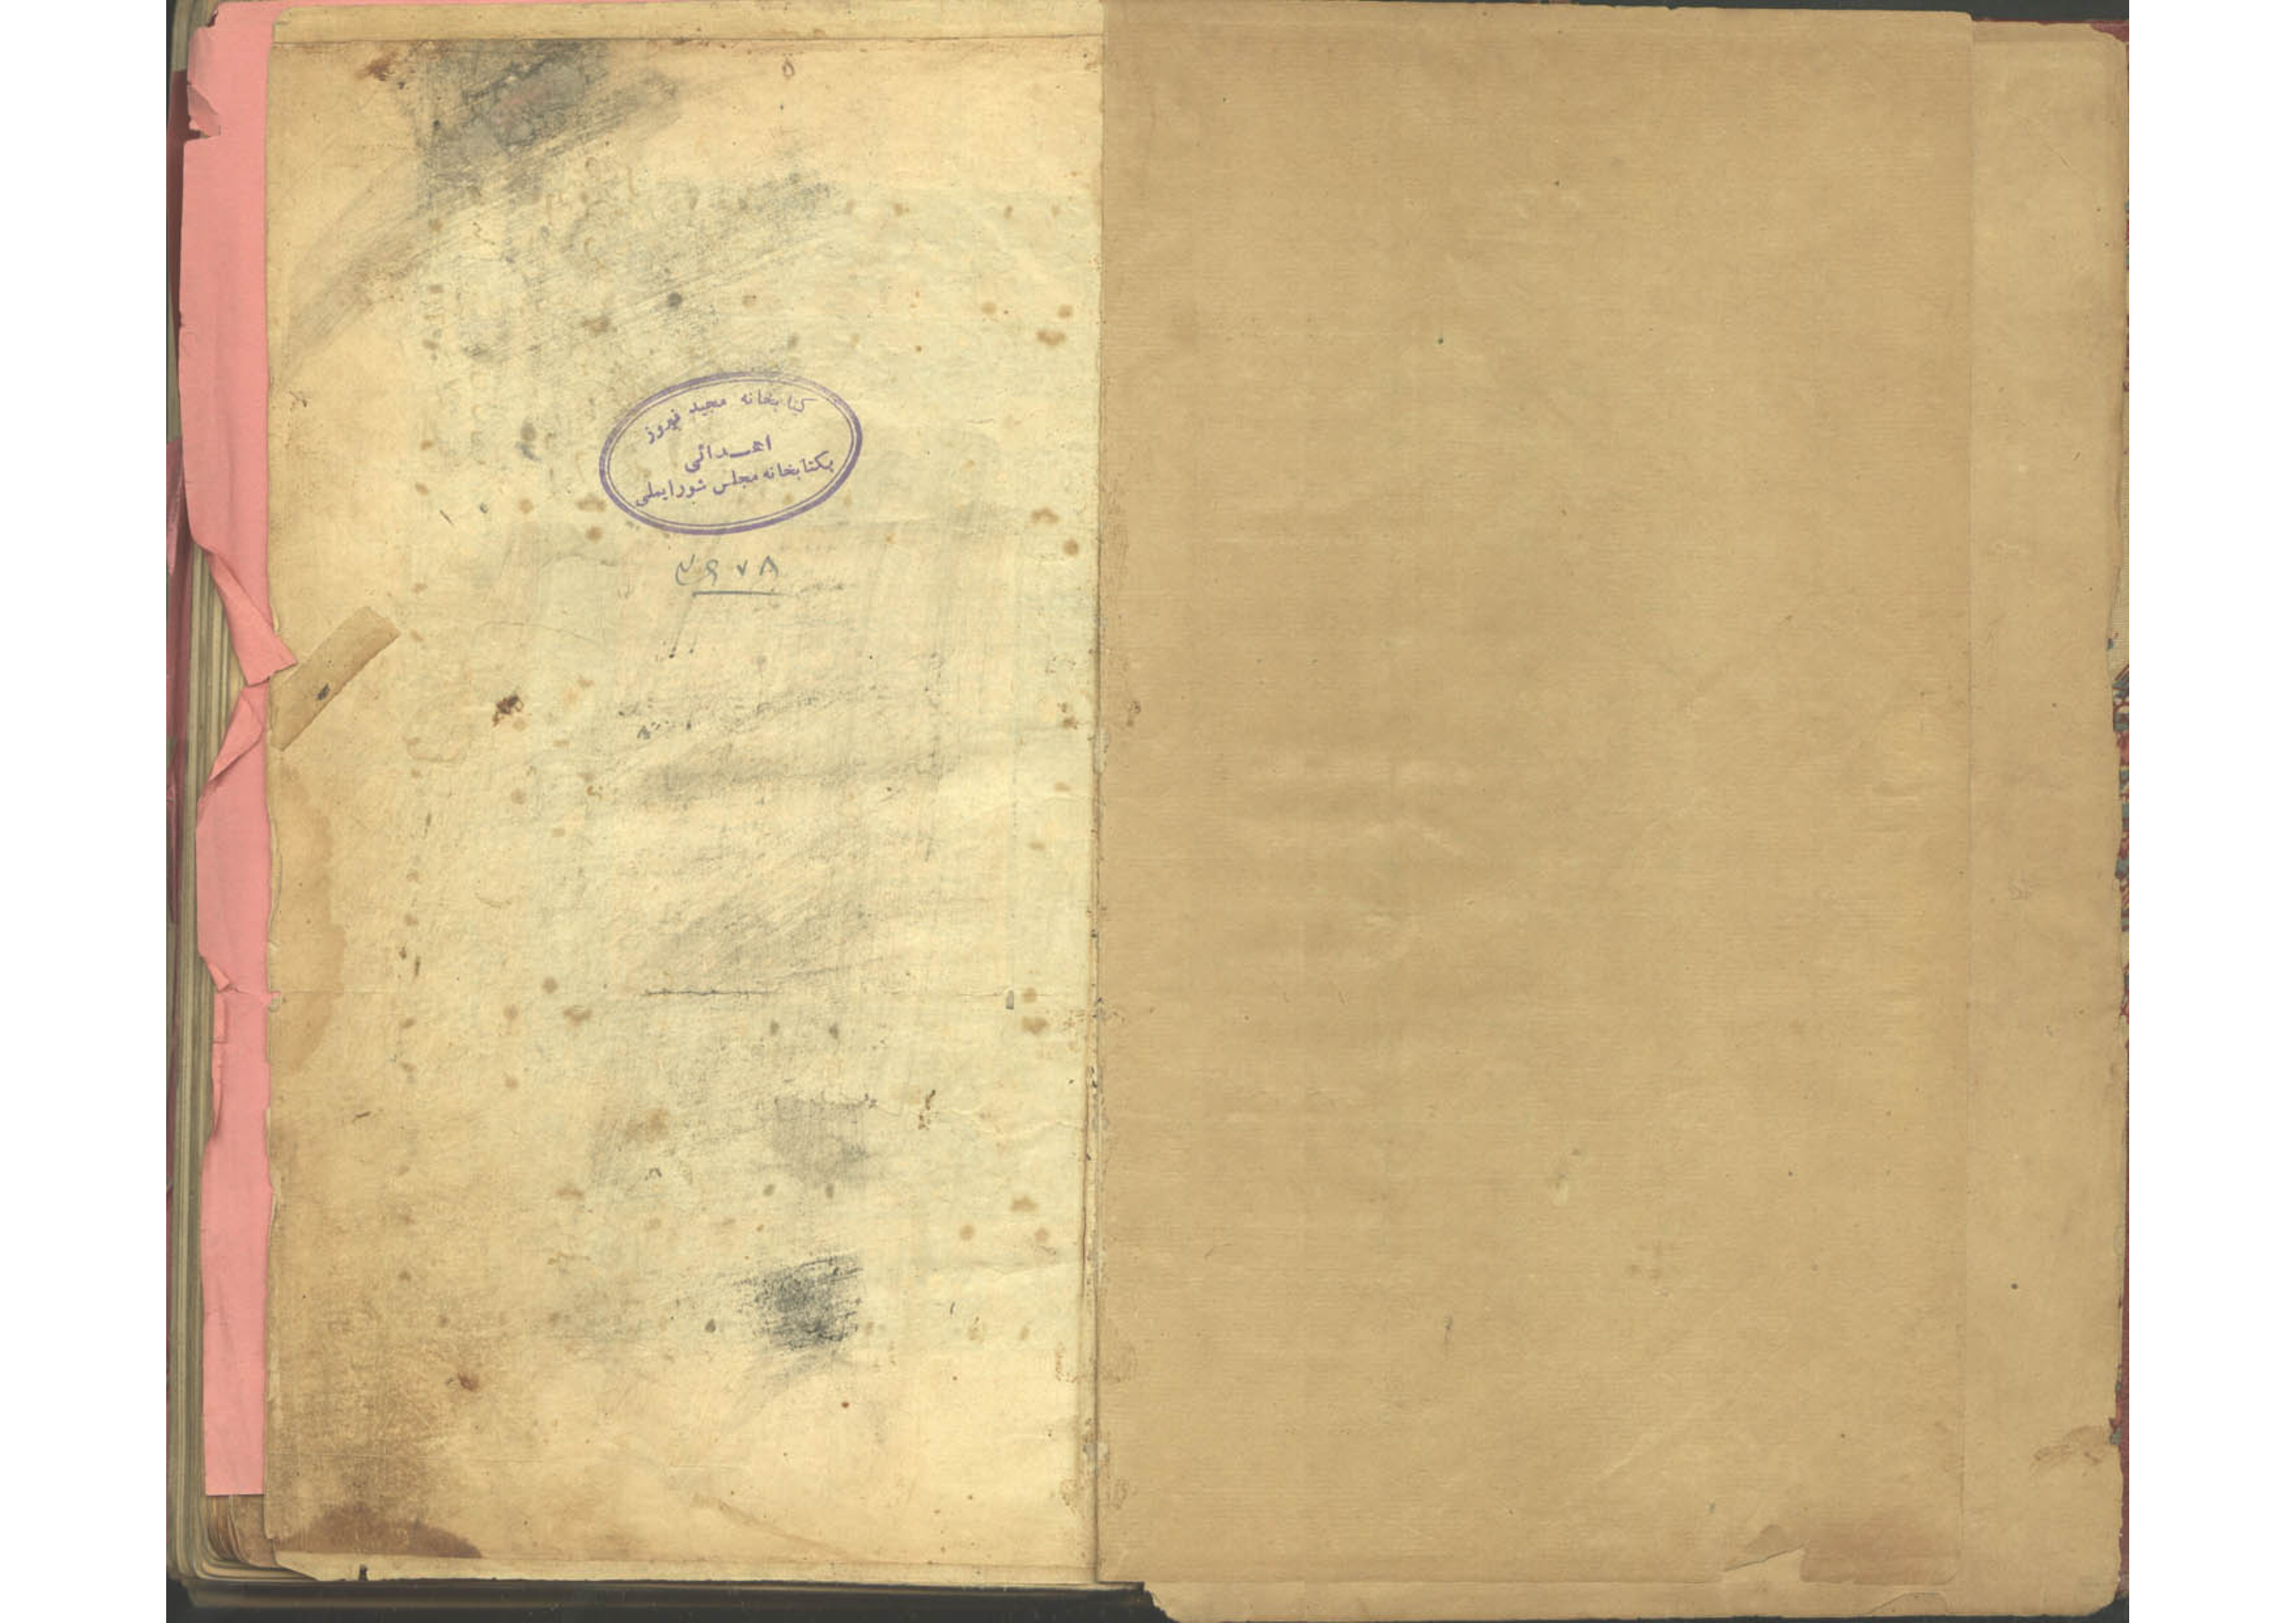 کتابخانه مجید فیروز
اهدائی
بکتابخانه مجلس شورایملی
۴۶۷۸